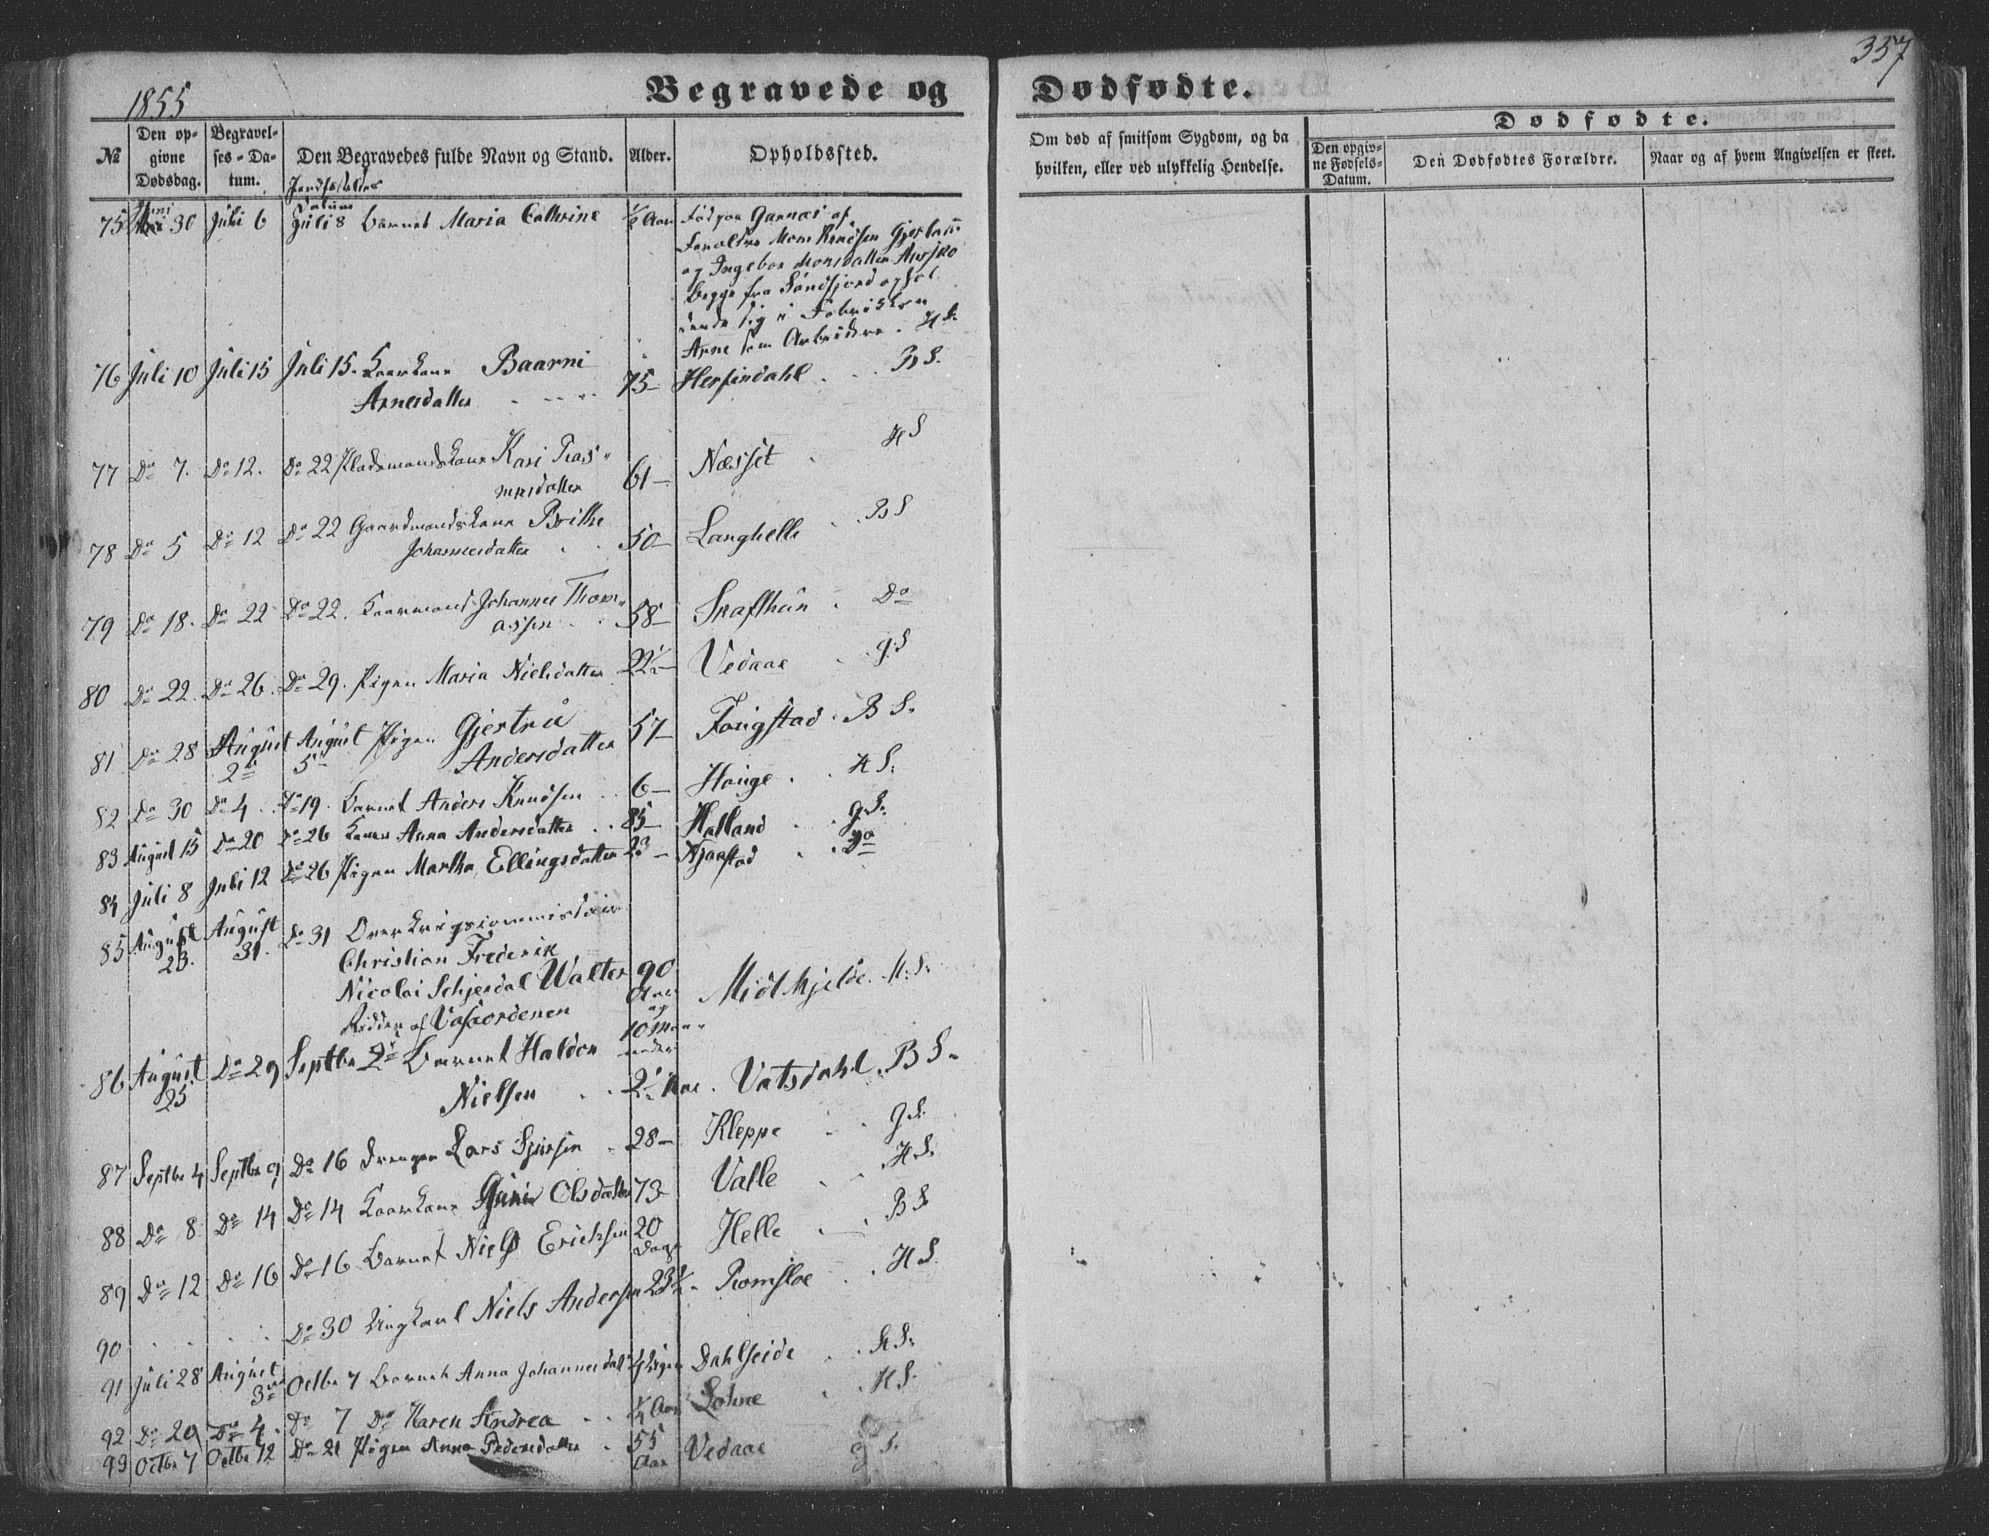 357
1855
Begravede og Dødfødte.
№
Den op-
givne
Dødsdag.
Begravel-
ses-Da-
tum.
Den Begravedes fulde Navn og Stand.
Alder.
Opholdssted.
Om død af smitsom Sygdom, og da
hvilken, eller ved ulykkelig Hendelse.
Dødfødte.
Den opgiv-
ne Fødsels-
Datum.
Den Dødfødtes Forældre.
Naar og af hvem Angivelsen er skeet.
Datum
75 Juni 30 Juli 6 Juli 8 Barnet Maria Cathrine ½ Aar Fød paa Garnæs af
Forældre Mons Knudsen
og Ingebor Monsdatter
begge fra Søndfjord ophol-
dende sig i Fabrikken
Arne som Arbeidere. H S.
76 Juli 10 Juli 15 Juli 15. Kaarkone Baarni
Arnesdatter 75 Herfindahl B S.
77 Do 7. Do 12. Do 22 Pladsmandskone Kari Ras-
musdatter 61 Næsset H S
78 Do 5 Do 12 Do 22 Gaardmandskone Brithe
Johannesdatter 50 Langhelle B S
79 Do 18. Do 22 Do 22. Kaarmand Johannes Thom-
assen 58 Skafthun Do
80 Do 22. Do 26. Do 29. Pigen Maria Nielsdatter 22½ Vedaae g S
81 Do 28 August 2de August 5te Pigen Gjertru
Andersdatter 57 Fougstad B S.
82 Do 30 Do 4 Do 19. Barnet Anders Knudsen 6 Houge H S.
83 August 15 Do 20 Do 26 Konen Anna Andersdatter 85 Halland g S.
84 Juli 8 Juli 12 Do 26 Pigen Martha Ellingsdatter 23 Njaastad Do
85 August 23. August 31. Do 31 Overkrigscommissair
Christian Frederik
Nicolai Schjerdal Walter 90
Aar
og
Ridder af Vasaordenen 10 Maa-
neder Midthjelde H. S.
86 August 25 Do 29 Septbr 2de Barnet Haldor
Nielsen 2½ Aar. Vatsdahl B S.
87 Septbr 4 Septbr 9 Do 16 Drengen Lars Sjursen 28 Kleppe g S.
88 Do 8. Do 14 Do 14 Kaarkone Guri Olsdatter 73 Valle H S.
89 Do 12 Do 16 Do 16 Barnet Niels Erichsen 20
Dage Helle B S
90 Do 30 Ungkarl Niels Andersen 23½ Romsloe H S.
91 Juli 28 August 3die Octbr 7 Barnet Anna Johannesdatter Dahlseide H S.
92 Do 29 Do 4 Do 7 Do Karen Andrea ¼ Aar Lohne H S.
93 Octbr 7 Octbr 12 Do 21 Pigen Anna Pedersdatter 55
Aar Vedaae g S.